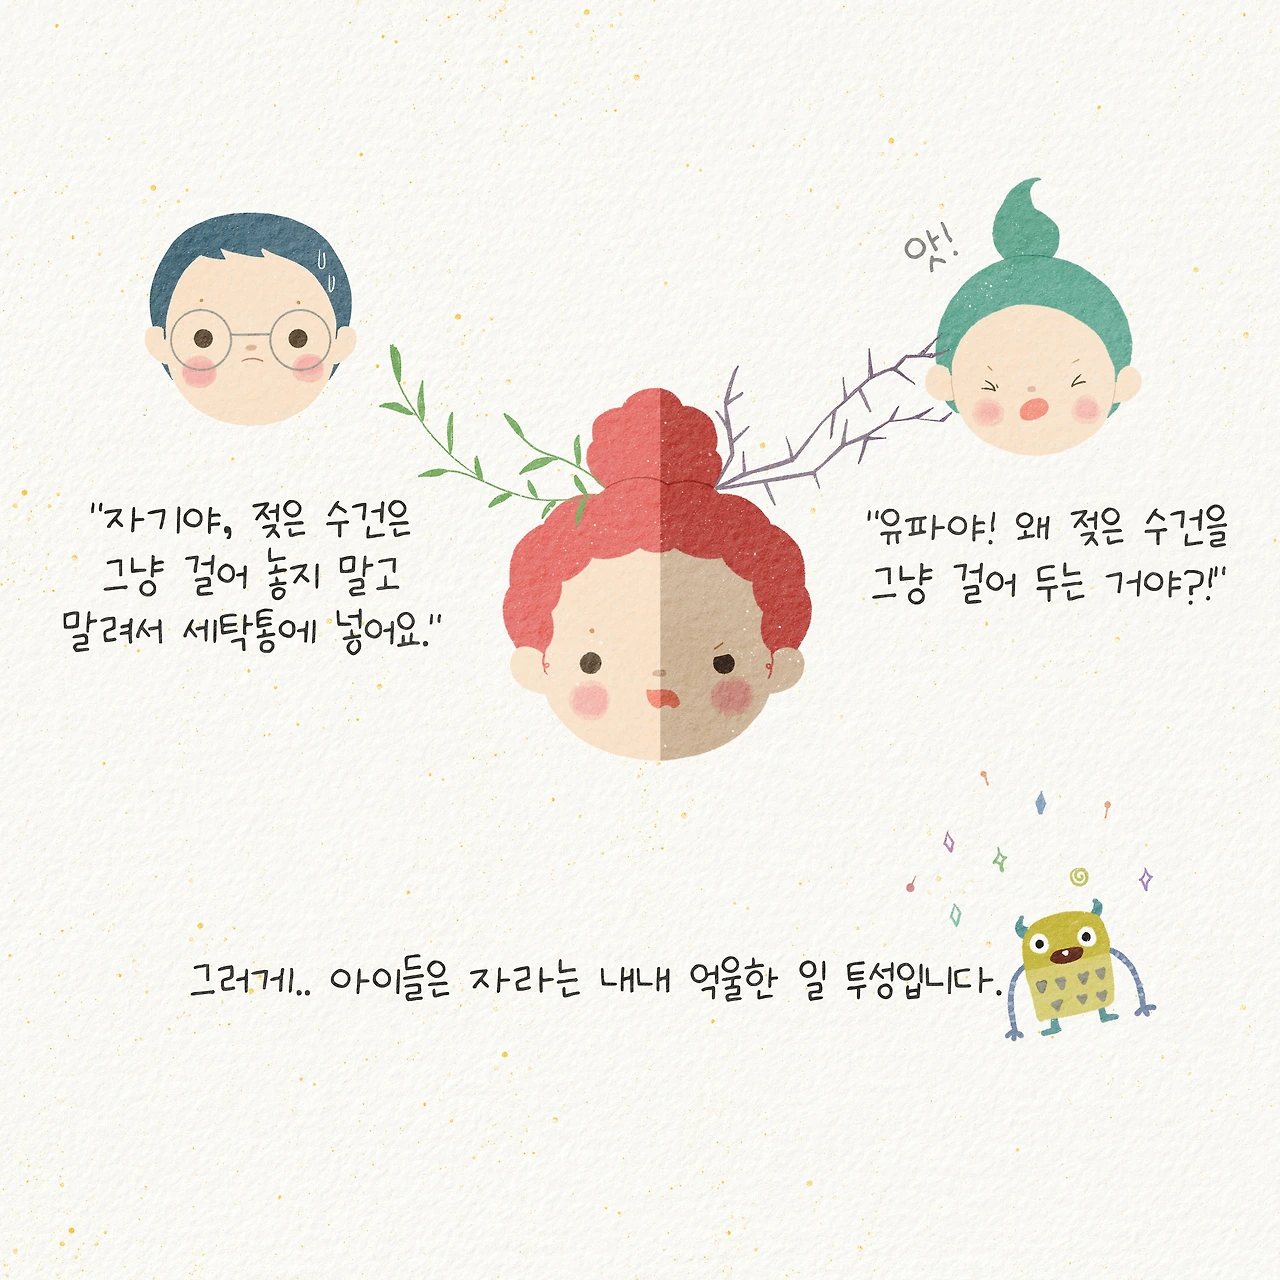 앗!
"자기야, 젖은 수건은
그냥 걸어 놓지 말고
말려서 세탁통에 넣어요."
"유파야! 왜 젖은 수건을
그냥 걸어 두는 거야?!"
그러게.. 아이들은 자라는 내내 억울한 일 투성입니다.